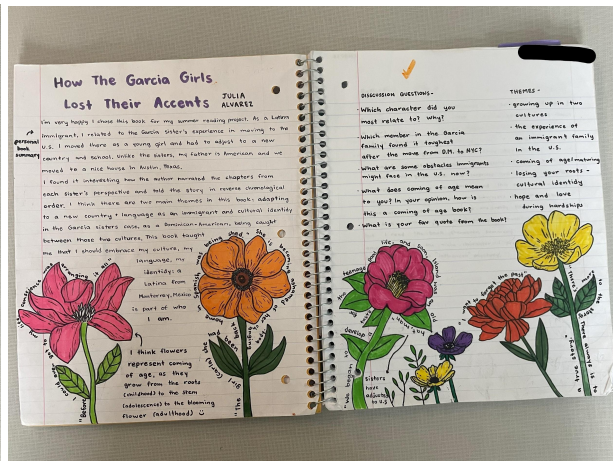 How The Garcia Girls
Lost Their Accents
JULIA
ALVAREZ
personal
book
summary
I'm very happy I chose this book for my summer reading project. As a Latina
Immigrant, I related to the Garcia sister's experience in moving to the
U.S. I moved there as a young girl and had to adjust to a new
country and school. Unlike the sisters, my father is American and we
moved to a nice house in Austin, Texas.
I found it interesting how the author narrated the chapters from
each sister's perspective and told the story in reverse chronological
order. I think there are two main themes in this book: adapting
to a new country + language as an immigrant and cultural identity
in the Garcia sisters case, as a Dominican-American, being caught
between those two cultures. This book taught
me that I should embrace my culture, my
language, my
identity; a
Latina from
Monterrey, México
is part of who
I am.
I think flowers
represent coming
of age, as they
grow from the roots
(childhood) to the stem
(adolescence) to the blooming
flower (adulthood)
DISCUSSION QUESTIONS-
· Which character did you
most relate to? Why?
· Which member in the Garcia
family found it toughest
after the move from D.R. to NYC?
· What are some obstacles immigrants
might face in the U.S. now?
· what does coming of age mean
to you? In your opinion, how is
this a coming of age book?
· What is your fav quote from the book?
THEMES -
· growing up in two
cultures
· the experience of
an immigrant family
in the U.S.
· coming of age/maturing
· losing your roots-
cultural identity
· hope and love
during hardships
sisters
have
adjusted
to U.S